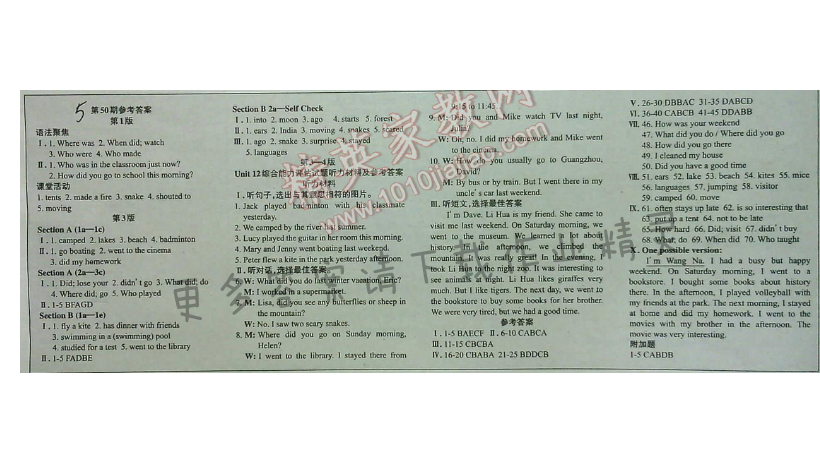 5 第50期参考答案
第1版
语法聚焦
Ⅰ. 1. Where was 2. When did; watch
3. Who were 4. Who made
Ⅱ. 1. Who was in the classroom just now?
2. How did you go to school this morning?
课堂活动
1. tents 2. made a fire 3. snake 4. shouted to
5. moving
第3版
Section A (1a—1c)
Ⅰ. 1. camped 2. lakes 3. beach 4. badminton
Ⅱ. 1. go boating 2. went to the cinema
3. did my homework
Section A (2a—3c)
Ⅰ. 1. Did; lose your 2. didn't go 3. What did; do
4. Where did; go 5. Who played
Ⅱ. 1-5 BFAGD
Section B (1a—1e)
Ⅰ. 1. fly a kite 2. has dinner with friends
3. swimming in a (swimming) pool
4. studied for a test 5. went to the library
Ⅱ. 1-5 FADBE
Section B 2a—Self Check
Ⅰ. 1. into 2. moon 3. ago 4. starts 5. forest
Ⅱ. 1. ears 2. India 3. moving 4. snakes 5. scared
Ⅲ. 1. ago 2. snake 3. surprise 4. stayed
5. languages
版
Unit 12综合能力评估试题听力材料及参考答案
听力材料
Ⅰ. 听句子,选出与其意思相符的图片。
1. Jack played badminton with his classmate
yesterday.
2. We camped by the river last summer.
3. Lucy played the guitar in her room this morning.
4. Mary and Jenny went boating last weekend.
5. Peter flew a kite in the park yesterday afternoon.
Ⅱ. 听对话,选择最佳答案。
6. W: What did you do last winter vacation, Eric?
M: I worked in a supermarket.
7. M: Lisa, did you see any butterflies or sheep in
the mountain?
W: No. I saw two scary snakes.
8. M: Where did you go on Sunday morning,
Helen?
W: I went to the library. I stayed there from
9:15 to 11:45.
9. M: Did you and Mike watch TV last night,
Julia?
W: Oh, no. I did my homework and Mike went
to the cinema.
10. W: How do you usually go to Guangzhou,
David?
M: By bus or by train. But I went there in my
uncle's car last weekend.
Ⅲ. 听短文,选择最佳答案。
I'm Dave. Li Hua is my friend. She came to
visit me last weekend. On Saturday morning, we
went to the museum. We learned a lot about
history. In the afternoon, we climbed the
mountain. It was really great. In the evening, I
took Li Hua to the night zoo. It was interesting to
see animals at night. Li Hua likes giraffes very
much. But I like tigers. The next day, we went to
the bookstore to buy some books for her brother.
We were very tired, but we had a good time.
参考答案
Ⅰ. 1-5 BAECF Ⅱ. 6-10 CABCA
Ⅲ. 11-15 CBCBA
Ⅳ. 16-20 CBABA 21-25 BDDCB
Ⅴ. 26-30 DBBAC 31-35 DABCD
Ⅵ. 36-40 CABCB 41-45 DDABB
Ⅶ. 46. How was your weekend
47. What did you do / Where did you go
48. How did you go there
49. I cleaned my house
50. Did you have a good time
Ⅷ. 51. ears 52. lake 53. beach 54. kites 55. mice
56. languages 57. jumping 58. visitor
59. camped 60. move
Ⅸ. 61. often stays up late 62. is so interesting that
63. put up a tent 64. not to be late
65. How hard 66. Did; visit 67. didn't buy
68. What; do 69. When did 70. Who taught
Ⅹ. One possible version:
I'm Wang Na. I had a busy but happy
weekend. On Saturday morning, I went to a
bookstore. I bought some books about history
there. In the afternoon, I played volleyball with
my friends at the park. The next morning, I stayed
at home and did my homework. I went to the
movies with my brother in the afternoon. The
movie was very interesting.
附加题
1-5 CABDB
精英家教网
www.1010jiajiao.com
更多答案请下载作业精灵